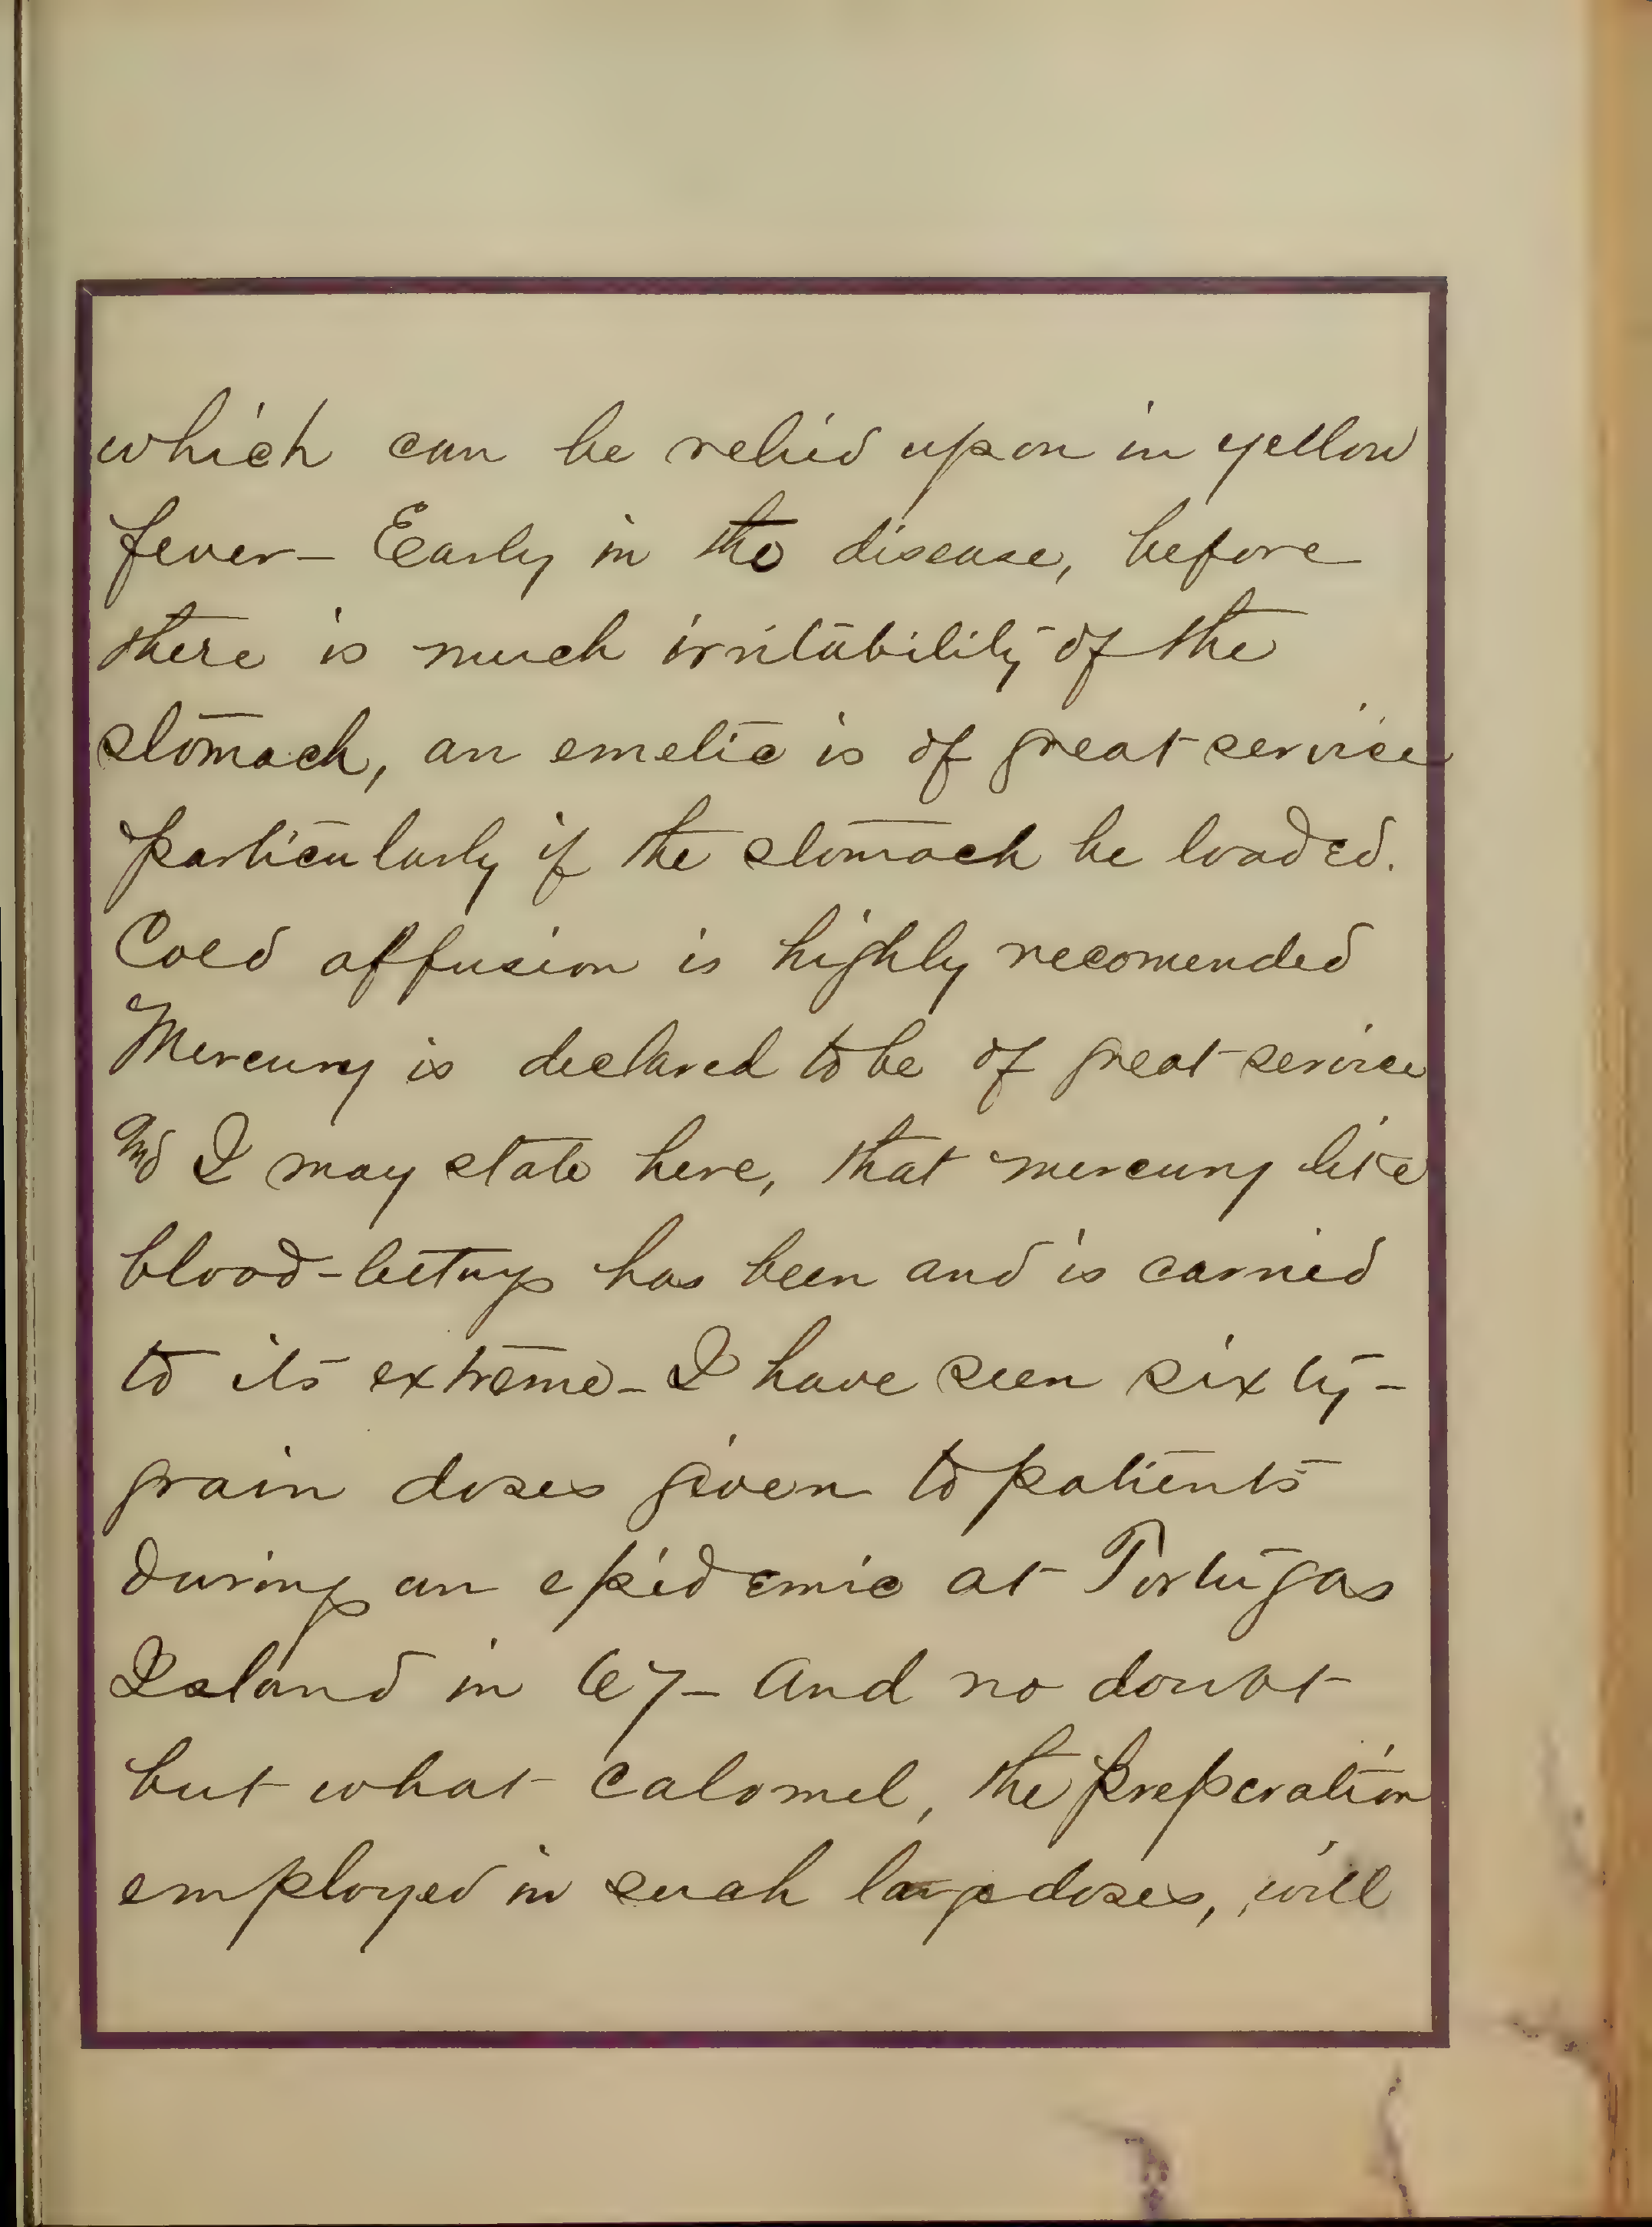 which can be relied upon in yellow
fever- Early in the disease, before
there is much irritability of the
stomach, an emetic is of great service
particularly if the stomach be loaded.
Cold affusion is highly recomended
Mercury is declared to be of great service
And I may state here, that mercury like
blood-letting has been and is carried
to its extreme- I have seen sixty-
grain doses given to patients
during an epidemic at Tortugas
Island in 67- And no doubt
but what calomel, the preperation
employed in such large doses, will